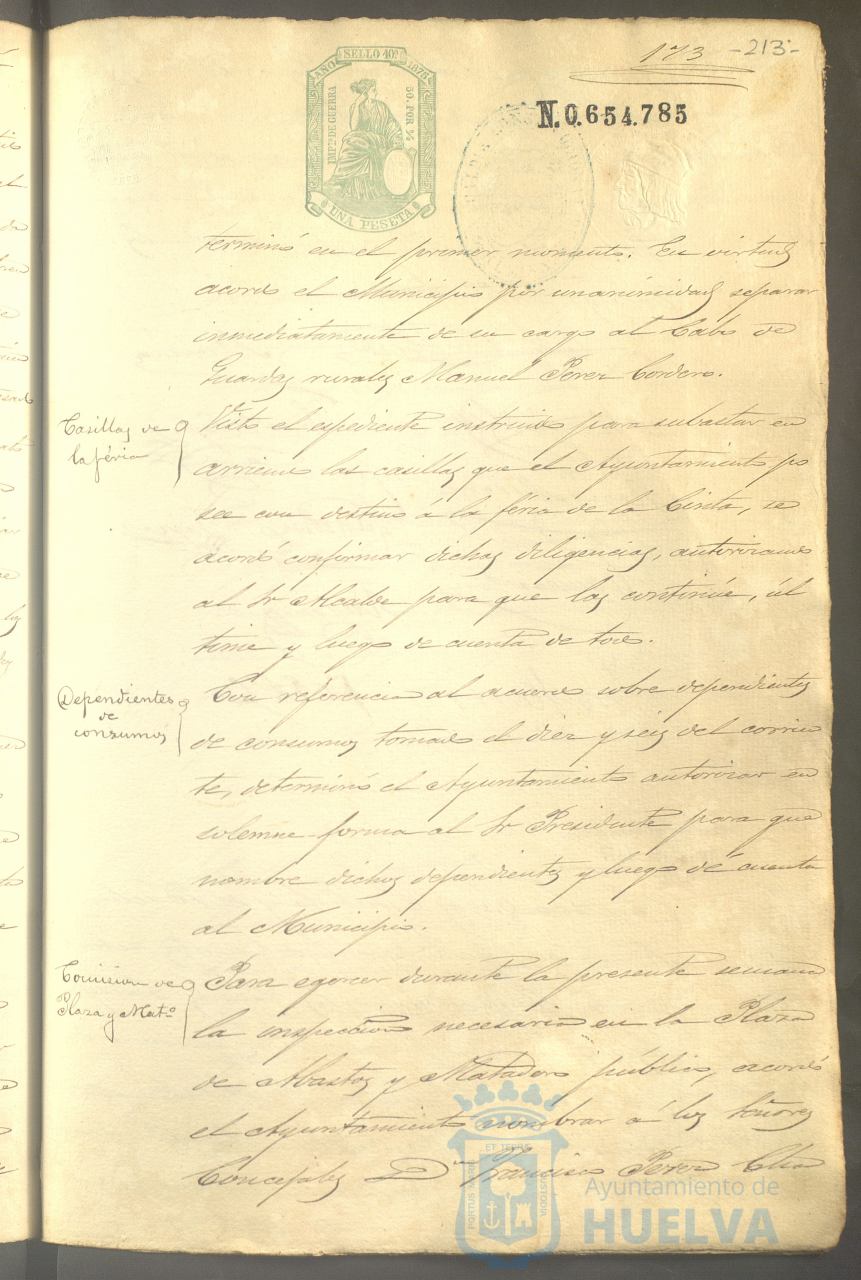 173 -213-
AÑO SELLO 10º 1875
IMPTO DE GUERRA
50 POR %
UNA PESETA
N.0.654.785
terminó en el primer momento. En virtud
acordó el Municipio por unanimidad separar
inmediatamente de su cargo al Cabo de
Guardas rurales Manuel Perez Cordero.
Casillas de
la féria
Visto el espediente instruido para subastar en
arriendo las casillas que el Ayuntamiento po
see con destino á la féria de la Cinta, se
acordó confirmar dichas diligencias, autorizando
al Sr Alcalde para que las continúe, úl
time y luego de cuenta de todo.
Dependientes
de
consumos
Con referencia al acuerdo sobre dependientes
de consumos tomado el diez y seis del corrien
te, determinó el Ayuntamiento autorizar en
solemne forma al Sr Presidente para que
nombre dichos dependientes y luego dé cuenta
al Municipio.
Comision de
Plaza y Matº
Para egercer durante la presente semana
la inspeccion necesaria en la Plaza
de Abastos y Matadero público, acordó
el Ayuntamiento nombrar á los Señores
Concejales Dn Francisco Perez
PORTUS MARIS ET TERRE CUSTODIA
Ayuntamiento de
HUELVA